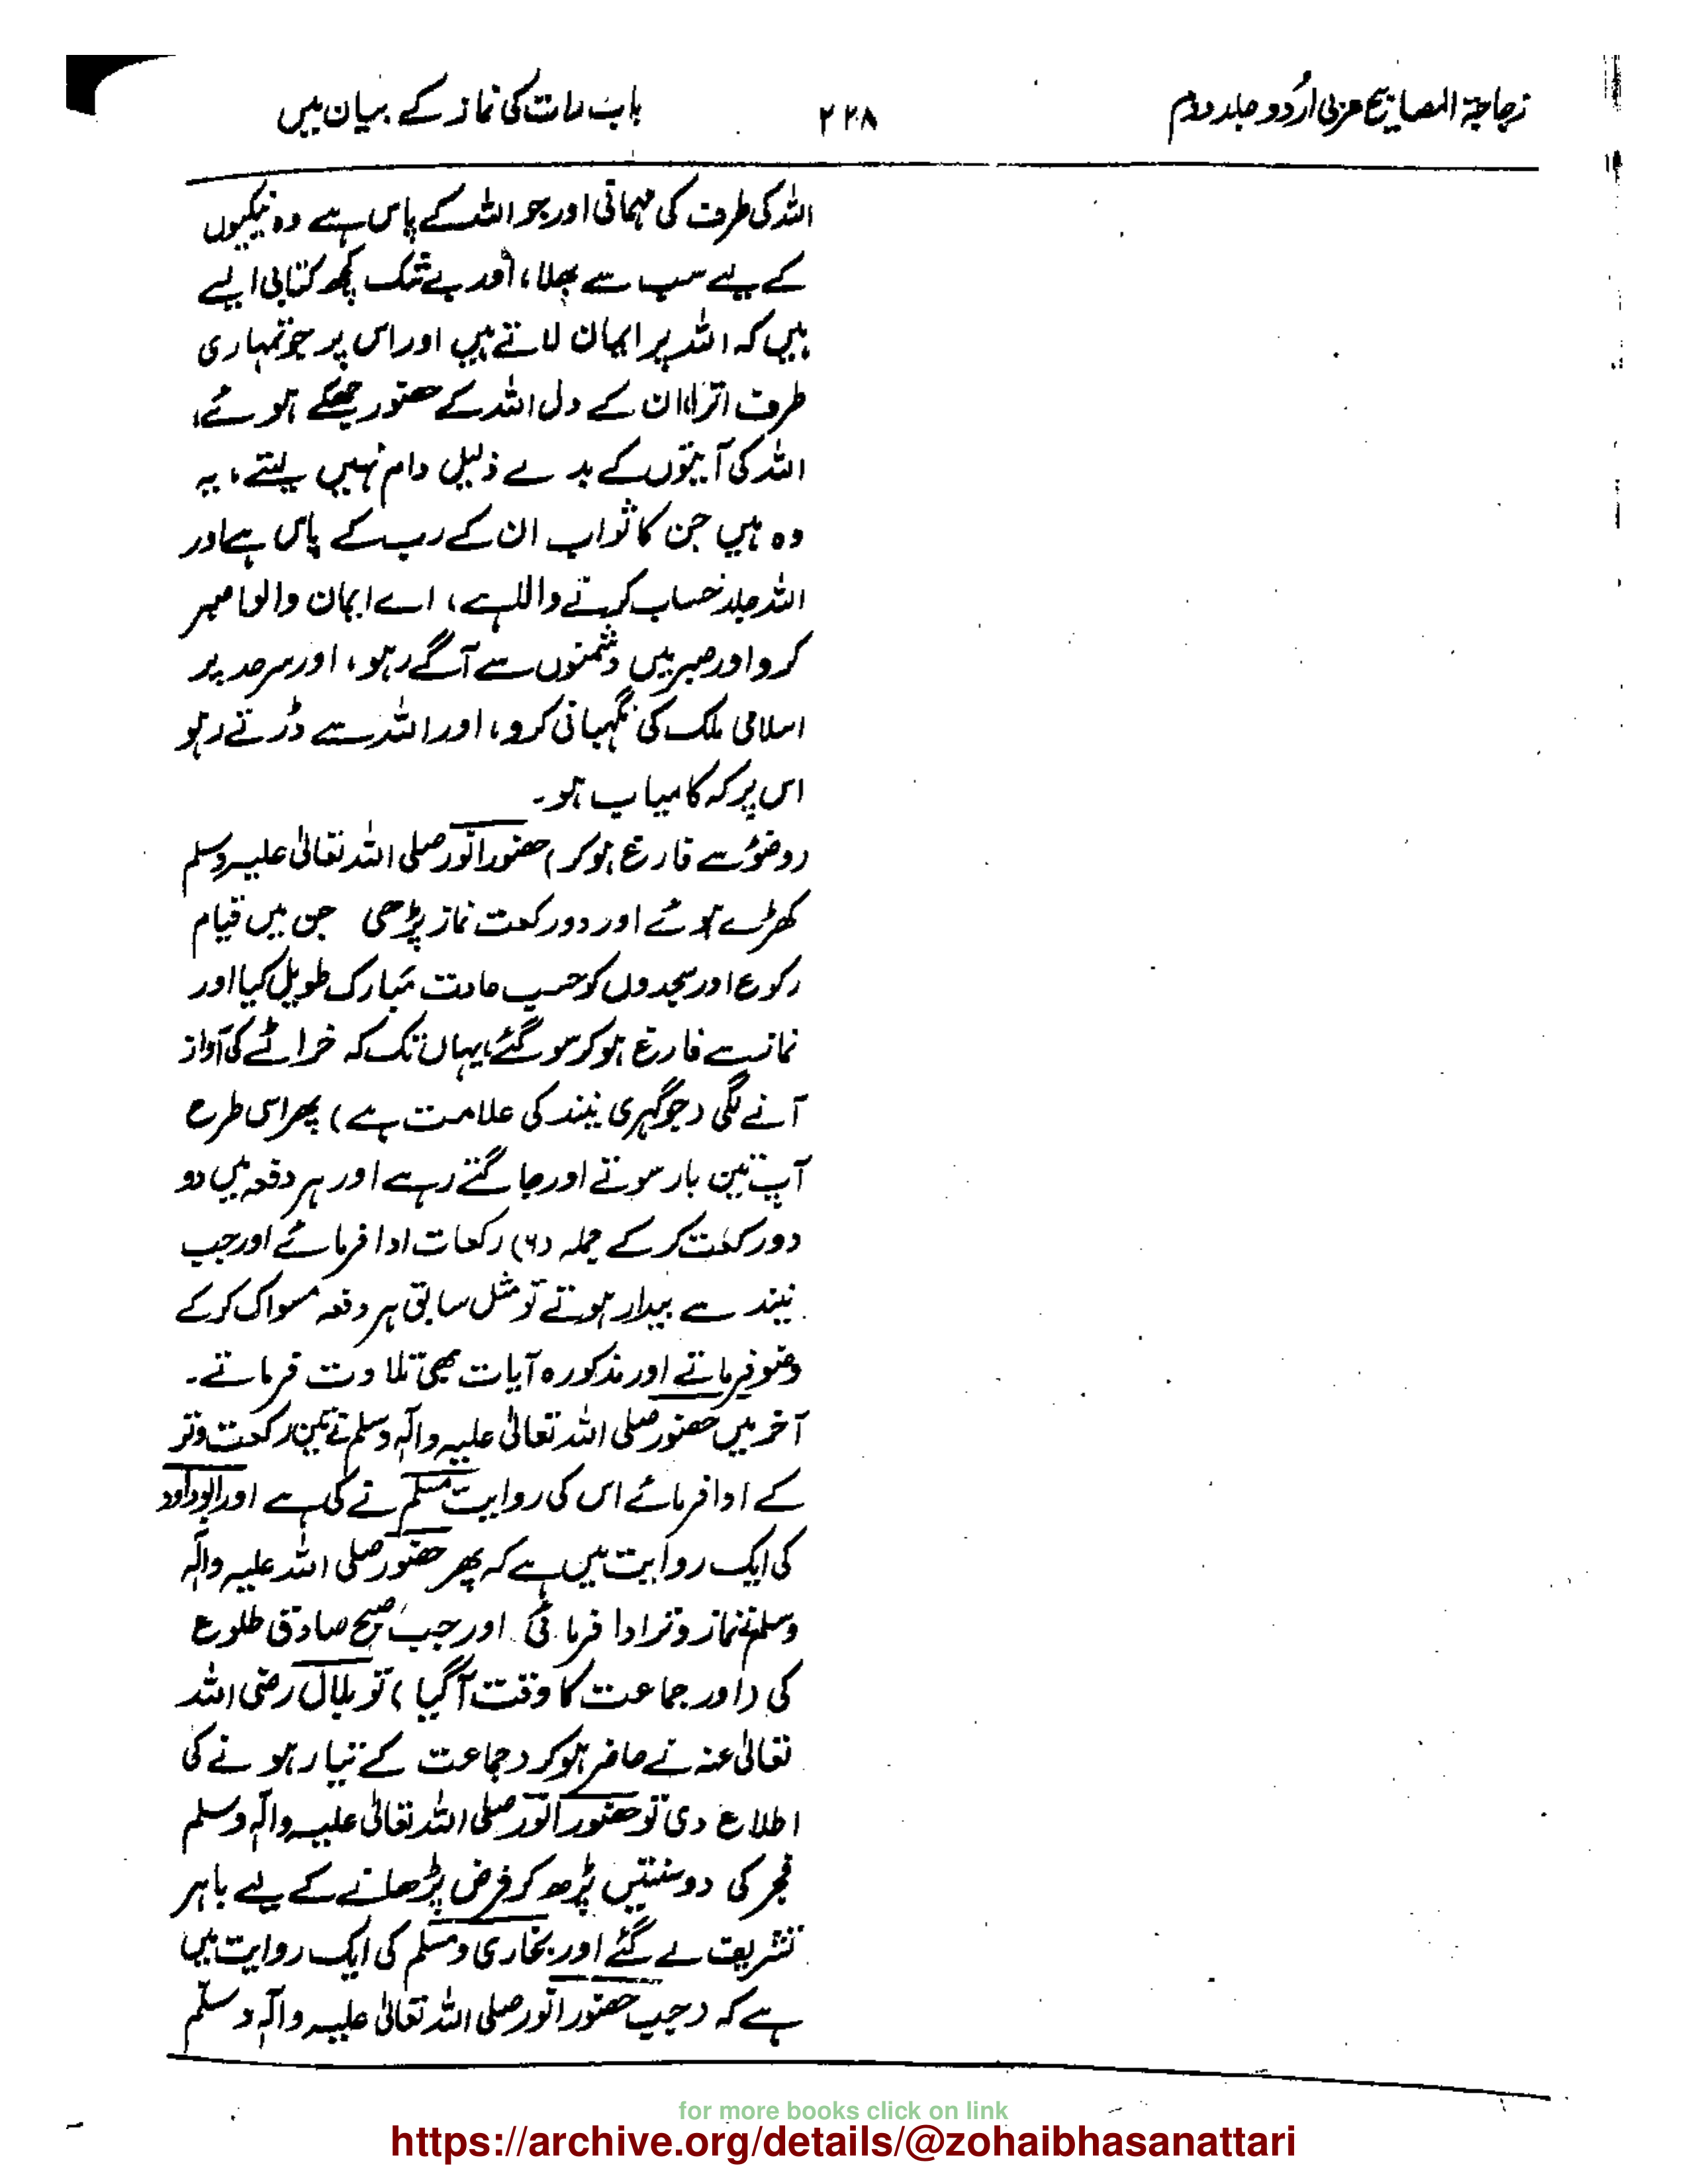 زجاجۃ المصابیح عربی اُردو جلد دوم
۲۲۸
باب رات کی نماز کے بیان میں
اللہ کی طرف کی مہمانی اور جو اللہ کے پاس ہے وہ نیکیوں
کے لیے سب سے بھلا، اور بے شک کچھ کتابی ایسے
ہیں کہ اللہ پر ایمان لاتے ہیں اور اس پر جو تمہاری
طرف اترا ان کے دل اللہ کے حضور جھکے ہوئے،
اللہ کی آیتوں کے بدلے ذلیل دام نہیں لیتے، یہ
وہ ہیں جن کا ثواب ان کے رب کے پاس ہے اور
اللہ جلد حساب کرنے والا ہے، اے ایمان والو! صبر
کرو اور صبر میں دشمنوں سے آگے رہو، اور سرحد پر
اسلامی ملک کی نگہبانی کرو، اور اللہ سے ڈرتے رہو
اس پر کہ کامیاب ہو۔
(وضوء سے فارغ ہو کر) حضور انور صلی اللہ تعالیٰ علیہ وسلم
کھڑے ہوئے اور دو رکعت نماز پڑھی جن میں قیام
رکوع اور سجدوں کو حسب عادت مبارک طویل کیا اور
نماز سے فارغ ہو کر سو گئے، یہاں تک کہ خراٹے کی آواز
آنے لگی (جو گہری نیند کی علامت ہے) پھر اسی طرح
آپ تین بار سوتے اور جاگتے رہے اور ہر دفعہ میں دو
دو رکعت کر کے جملہ (۶) رکعات ادا فرمائے اور جب
نیند سے بیدار ہوتے تو مثل سابق ہر دفعہ مسواک کر کے
وضو فرماتے اور مذکورہ آیات بھی تلاوت فرماتے۔
آخر میں حضور صلی اللہ تعالیٰ علیہ وآلہ وسلم نے تین رکعت وتر
کے ادا فرمائے اس کی روایت مسلم نے کی ہے اور ابوداؤد
کی ایک روایت میں ہے کہ پھر حضور صلی اللہ علیہ وآلہ
وسلم نے نماز وتر ادا فرمائی اور جب صبح صادق طلوع
کی (اور جماعت کا وقت آگیا) تو بلال رضی اللہ
تعالیٰ عنہ نے حاضر ہو کر (جماعت کے تیار ہونے کی
اطلاع دی تو حضور انور صلی اللہ تعالیٰ علیہ وآلہ وسلم
فجر کی دو سنتیں پڑھ کر فرض پڑھانے کے لیے باہر
تشریف لے گئے اور بخاری و مسلم کی ایک روایت میں
ہے کہ (جب حضور انور صلی اللہ تعالیٰ علیہ وآلہ وسلم
for more books click on link
https://archive.org/details/@zohaibhasanattari